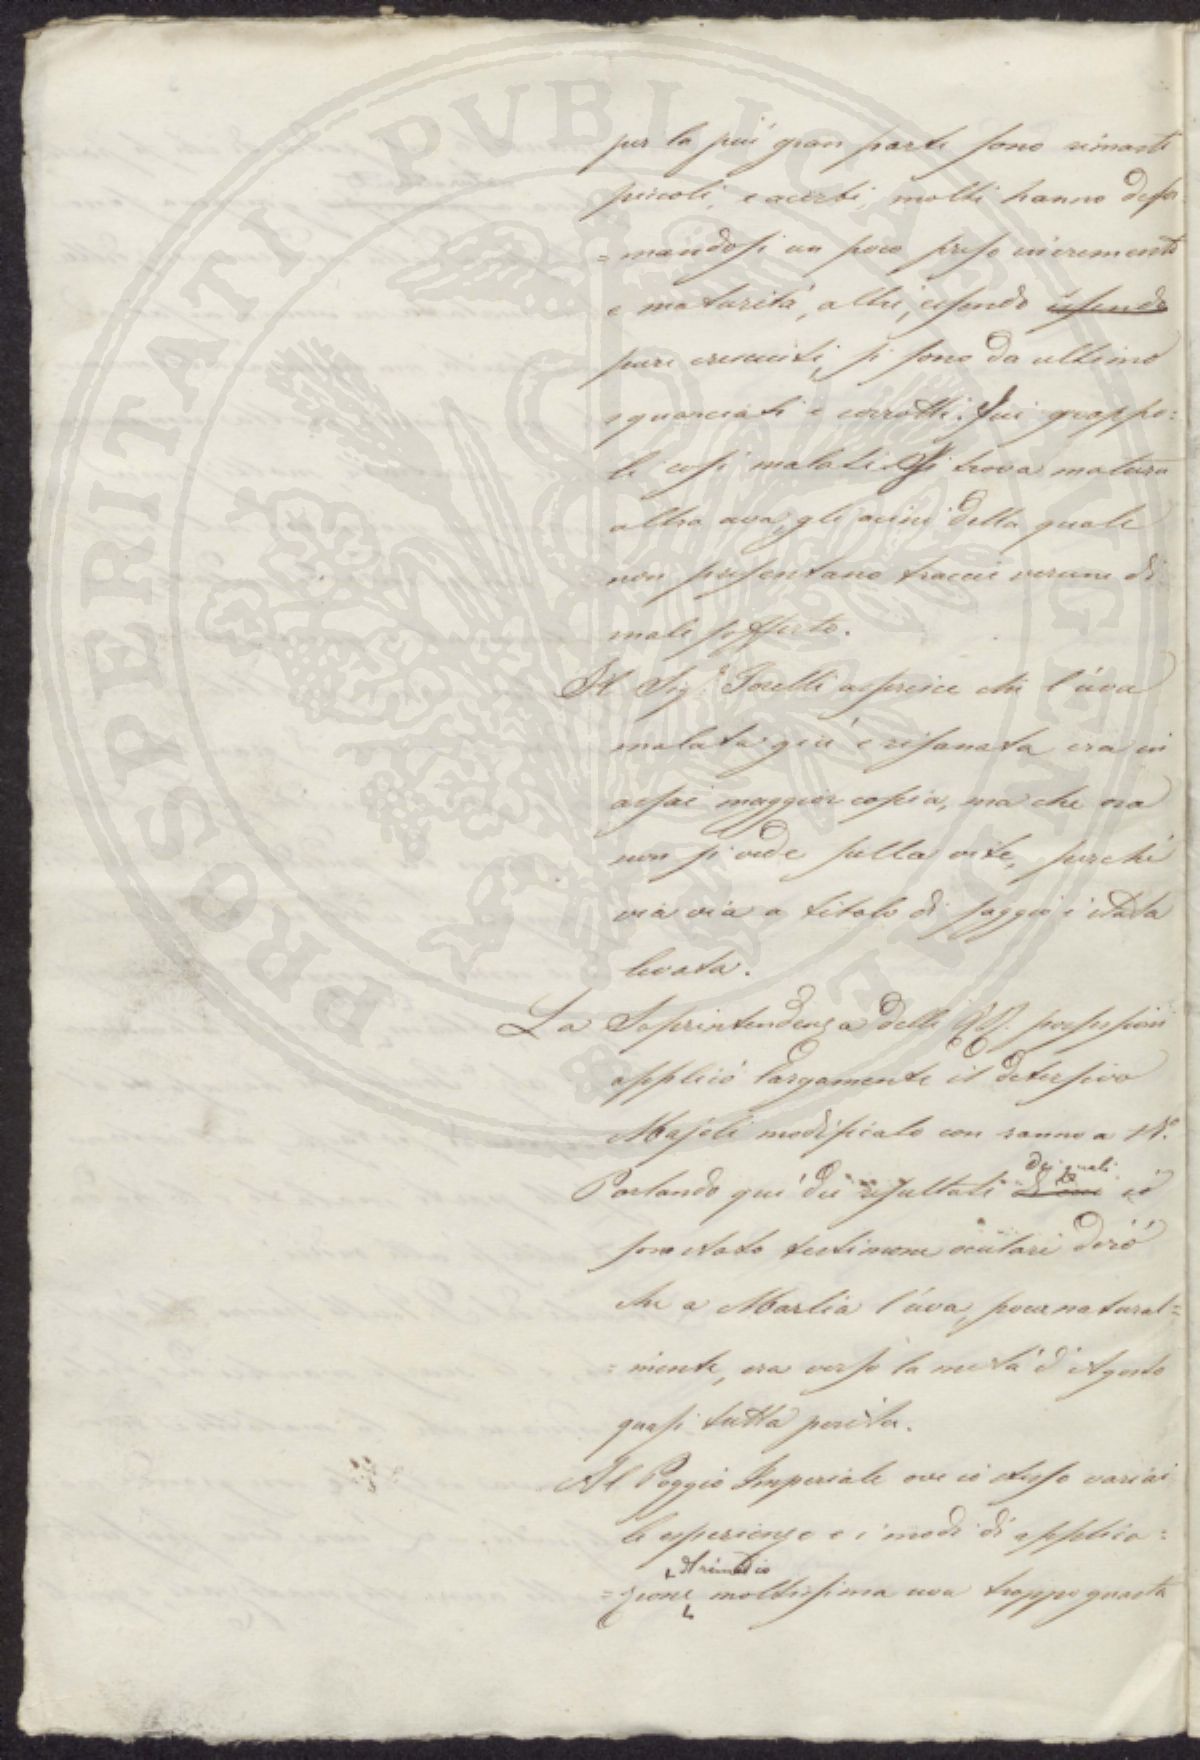 PROSPERITATI PVBLICAE AVGENDAE
per la più gran parte sono rimasti
piccoli, e acerbi, molti hanno defor
=mandosi un poco preso incremento
e maturità, altri, essendo essendo
pure cresciuti, si sono da ultimo
squarciati e corrotti. Fui grappo=
li così malati si trova matura
altra uva, gli acini della quale
non presentano traccie veruna di
male sofferto.
Il Sig.r Torelli asserisce che l'uva
malata già e risanata era in
assai maggior copia, ma che ora
non si vede sulla vite, perchè
via via a titolo di saggio è stata
levata.
La Soprintendenza delle RR. possessioni
applicò largamente il detersivo
Majoli modificato con ranno a 14.°
Parlando quì dei resultati dei quali io
sono stato testimone oculare dirò
che a Marlia l'uva, pocanatural=
=mente, era verso la metà d'Agosto
quasi tutta perita.
Al Poggio Imperiale ove io stesso variai
le esperienze e i modi di applica=
=zione del rimedio moltissima uva troppo guasta